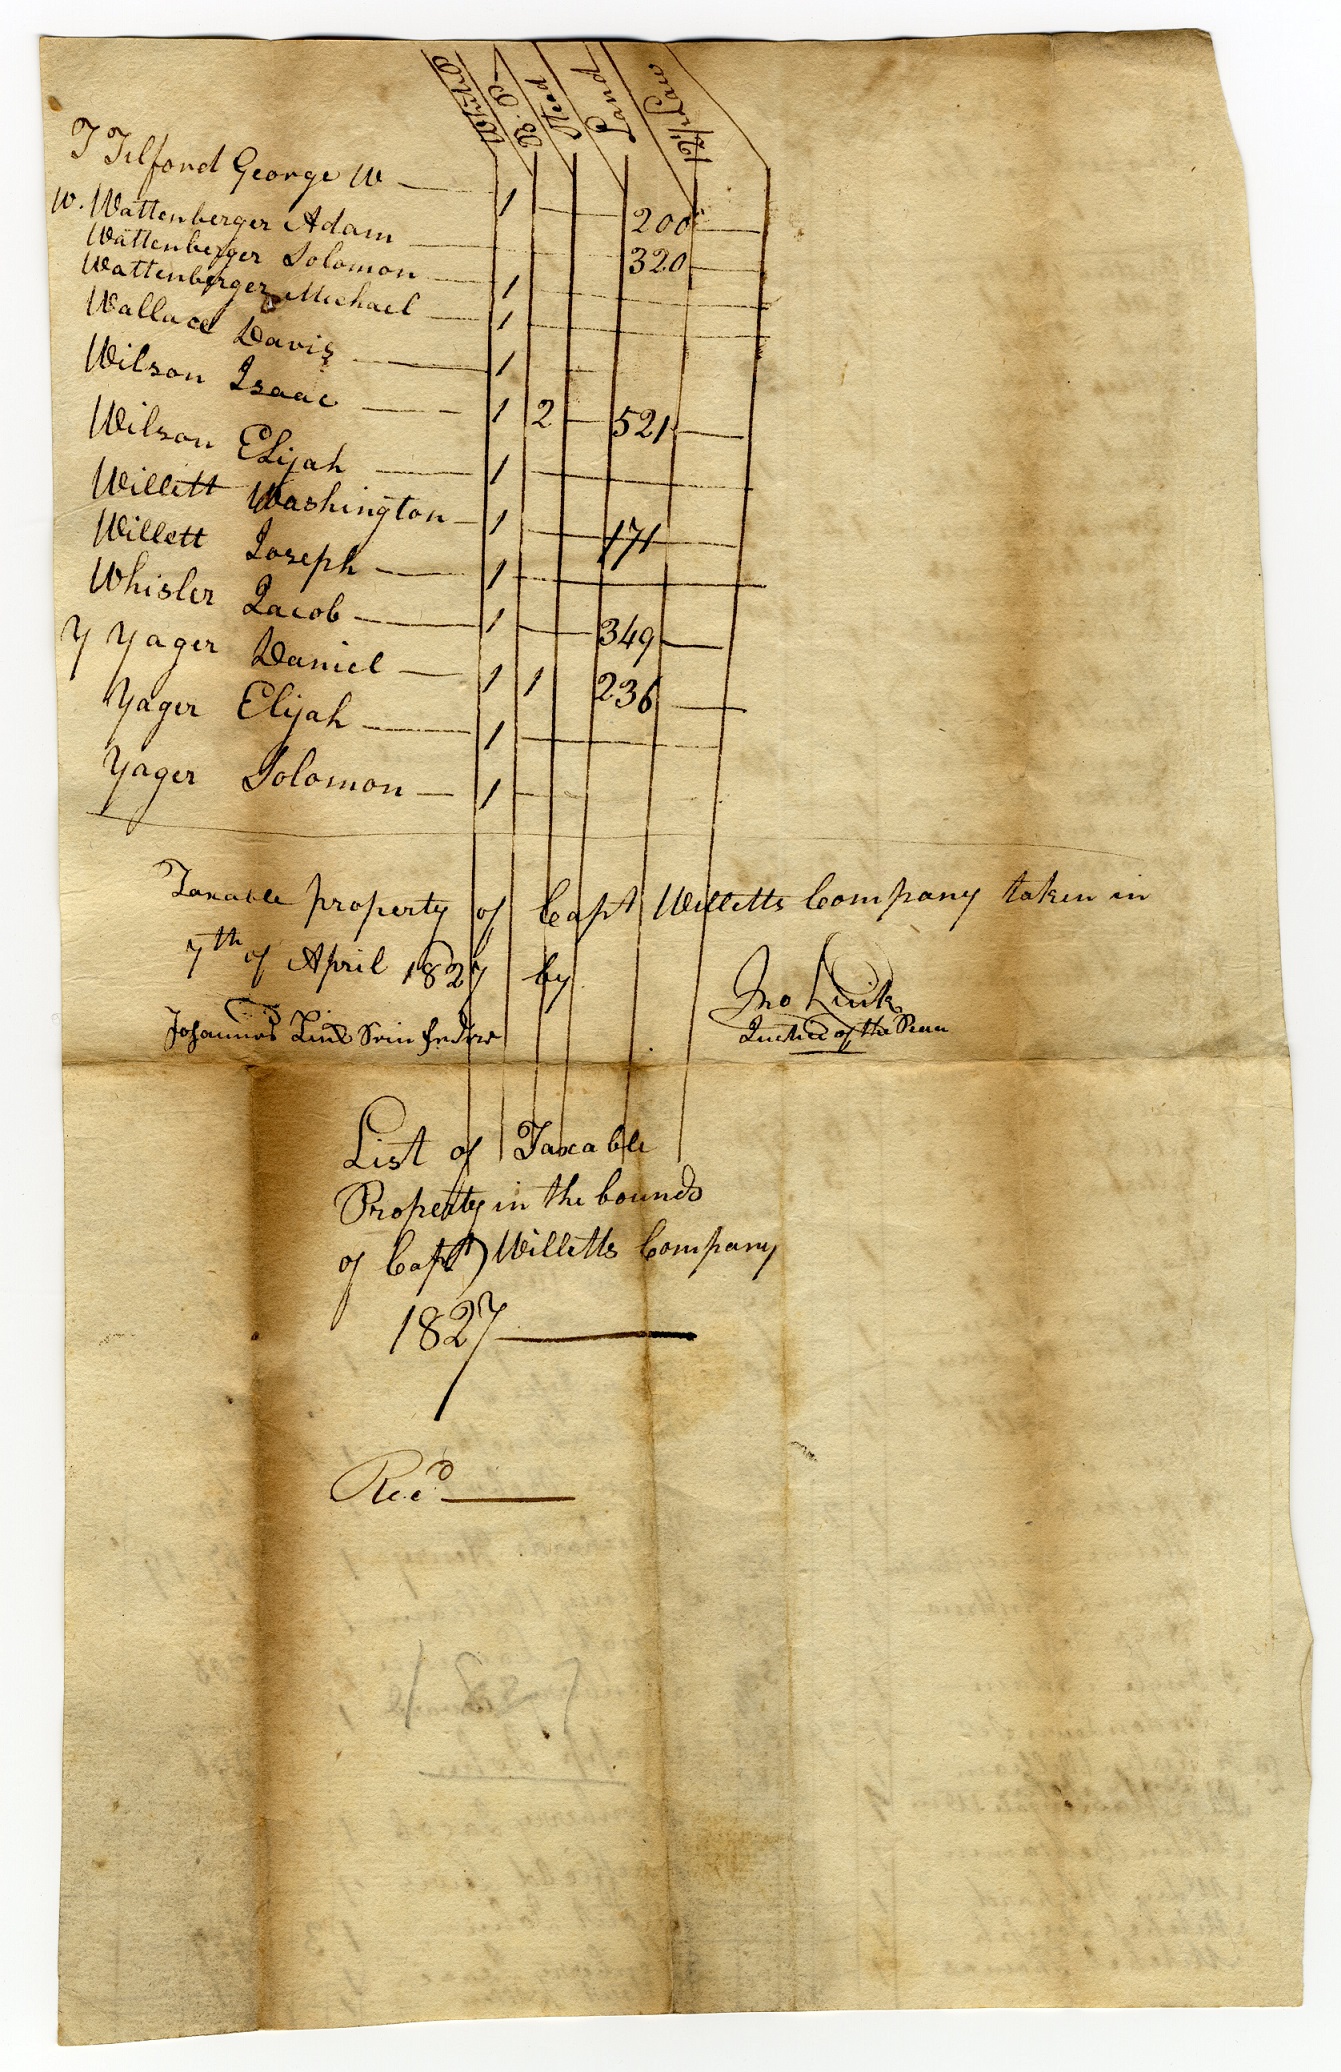 White P
B. P
Stud
Land
T Tilford George W — 1 — 200 —
W. Wattenberger Adam — 320 —
Wattenberger Solomon — 1 —
Wattenberger Michael — 1 —
Wallace Davis — 1 —
Wilson Isaac — 1 2 — 521 —
Wilson Elijah — 1 —
Willett Washington — 1 — 171 —
Willett Joseph — 1 —
Whisler Jacob — 1 — 349 —
Y Yager Daniel — 1 1 236 —
Yager Elijah — 1 —
Yager Solomon — 1 —
Taxable property of Capt Willetts Company taken in
7th of April 1827 by
Jno Link
Justice of the Peace
Johannes Link
List of Taxable
Property in the bounds
of Capt Willetts Company
1827 —
Recd —